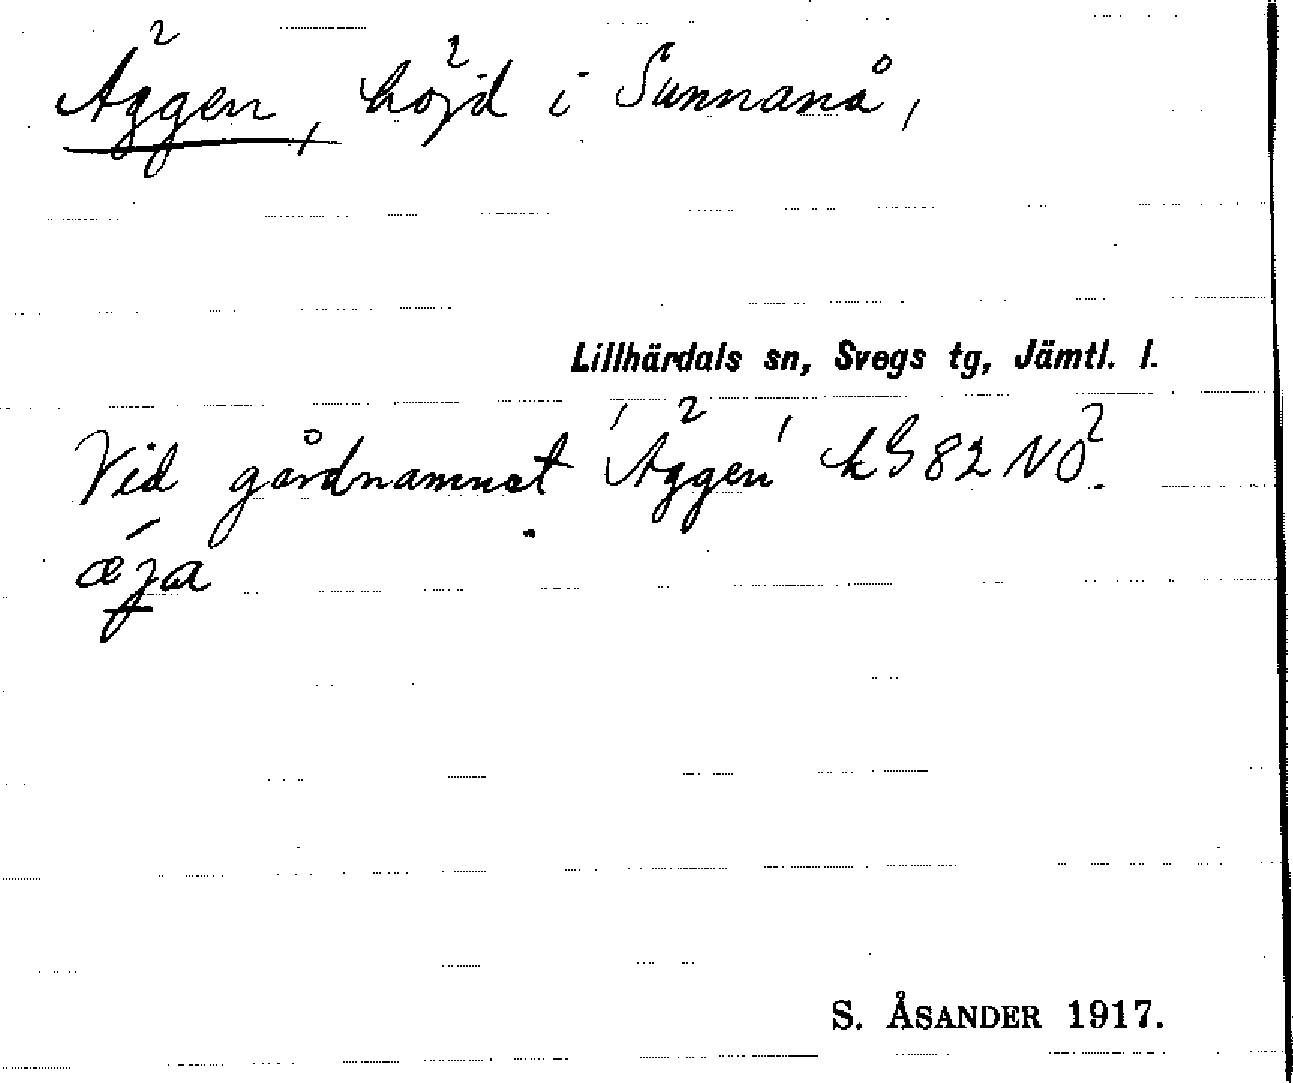 Äggen, höjd i Sunnanå,
Lillhärdals sn, Svegs tg, Jämtl. l.
Vid gårdnamnet 'Äggen' k G 82 NÖ.
S. ÅSANDER 1917.